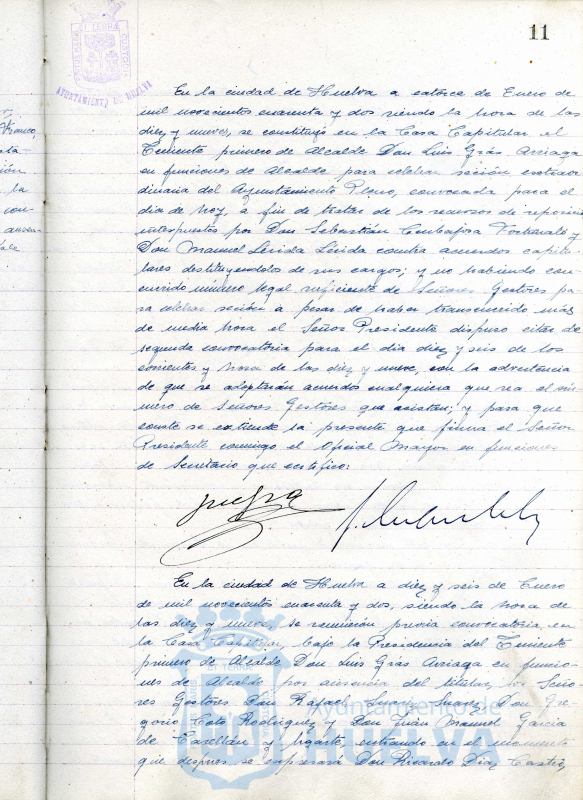 11
AYUNTAMIENTO DE HUELVA
En la ciudad de Huelva a catorce de Enero de
mil novecientos cuarenta y dos siendo la hora de las
diez y nueve, se constituyó en la Casa Capitular el
Teniente primero de Alcalde Don Luis Grás Arriaga
en funciones de Alcalde para celebrar sesión extraor
dinaria del Ayuntamiento Pleno, convocada para el
dia de hoy, a fin de tratar de los recursos de reposición
interpuestos por Don Sebastián y
Don Manuel Lérida Lérida contra acuerdos capitu
lares destituyendolos de sus cargos; y no habiendo con
currido número legal suficiente de Señores Gestores pa
ra celebrar sesión a pesar de haber transcurrido más
de media hora el Señor Presidente dispuso citar de
segunda convocatoria para el dia diez y seis de los
corrientes y hora de las diez y nueve, con la advertencia
de que se adoptarán acuerdos cualquiera que sea el nú
mero de Señores Gestores que asistan; y para que
conste se extiende la presente que firma el Señor
Presidente conmigo el Oficial Mayor en funciones
de Secretario que certifico:
En la ciudad de Huelva a diez y seis de Enero
de mil novecientos cuarenta y dos, siendo la hora de
las diez y nueve, se reunieron previa convocatoria, en
la Casa Capitular, bajo la Presidencia del Teniente
primero de Alcalde Don Luis Grás Arriaga en funcio
nes de Alcalde por ausencia del titular, los Seño
res Gestores Don Rafael Don Gre
gorio Soto Rodríguez y Don Juan Manuel García
de Castellán y Ugarte, entrando en el momento
que después se expresará Don Ricardo Díaz Castro,
Ayuntamiento de
HUELVA